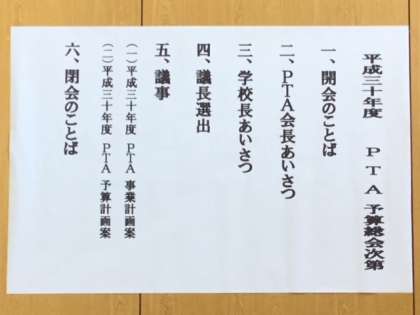 平成三十年度 PTA 予算総会次第
一、開会のことば
二、PTA会長あいさつ
三、学校長あいさつ
四、議長選出
五、議事
(一)平成三十年度 PTA 事業計画案
(二)平成三十年度 PTA 予算計画案
六、閉会のことば